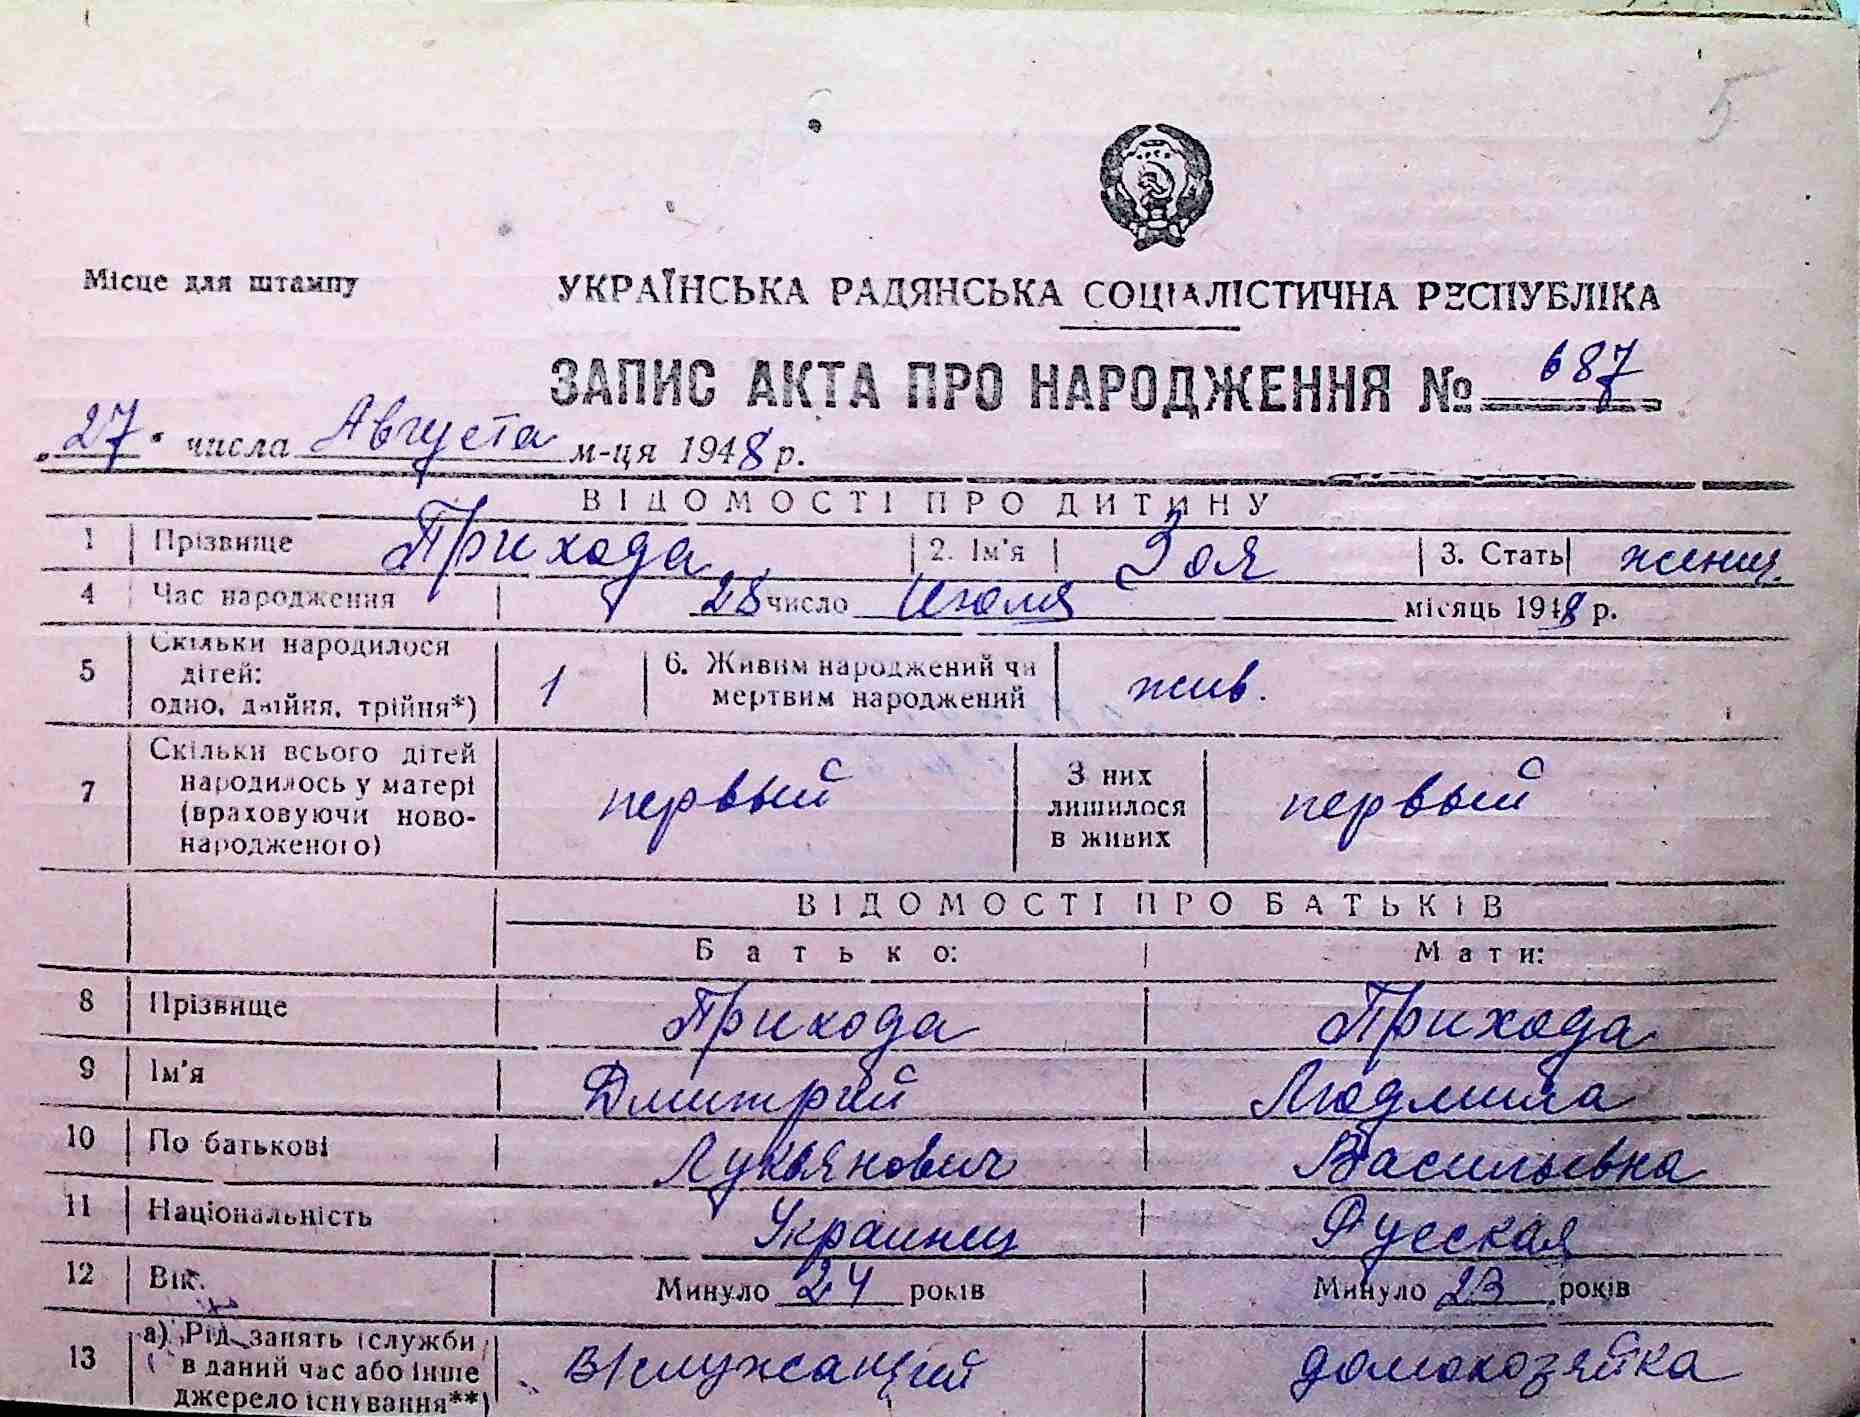 5
Місце для штампу
УКРАЇНСЬКА РАДЯНСЬКА СОЦІАЛІСТИЧНА РЕСПУБЛІКА
ЗАПИС АКТА ПРО НАРОДЖЕННЯ № 687
„27" числа Августа м-ця 1948 р.
ВІДОМОСТІ ПРО ДИТИНУ
1 Прізвище Прихода 2. Ім'я Зоя 3. Стать женщ.
4 Час народження 28 число Июля місяць 1948 р.
5 Скільки народилося дітей: одно, двійня, трійня*) 1 6. Живим народжений чи мертвим народжений жив.
7 Скільки всього дітей народилось у матері (враховуючи ново-народженого) первый З них лишилося в живих первый
ВІДОМОСТІ ПРО БАТЬКІВ
Батько: Мати:
8 Прізвище Прихода Прихода
9 Ім'я Дмитрий Людмила
10 По батькові Лукьянович Васильевна
11 Національність Украинец Русская
12 Вік. Минуло 24 років Минуло 23 років
13 а) Рід занять (служби в даний час або інше джерело існування**) в/служащий домохозяйка